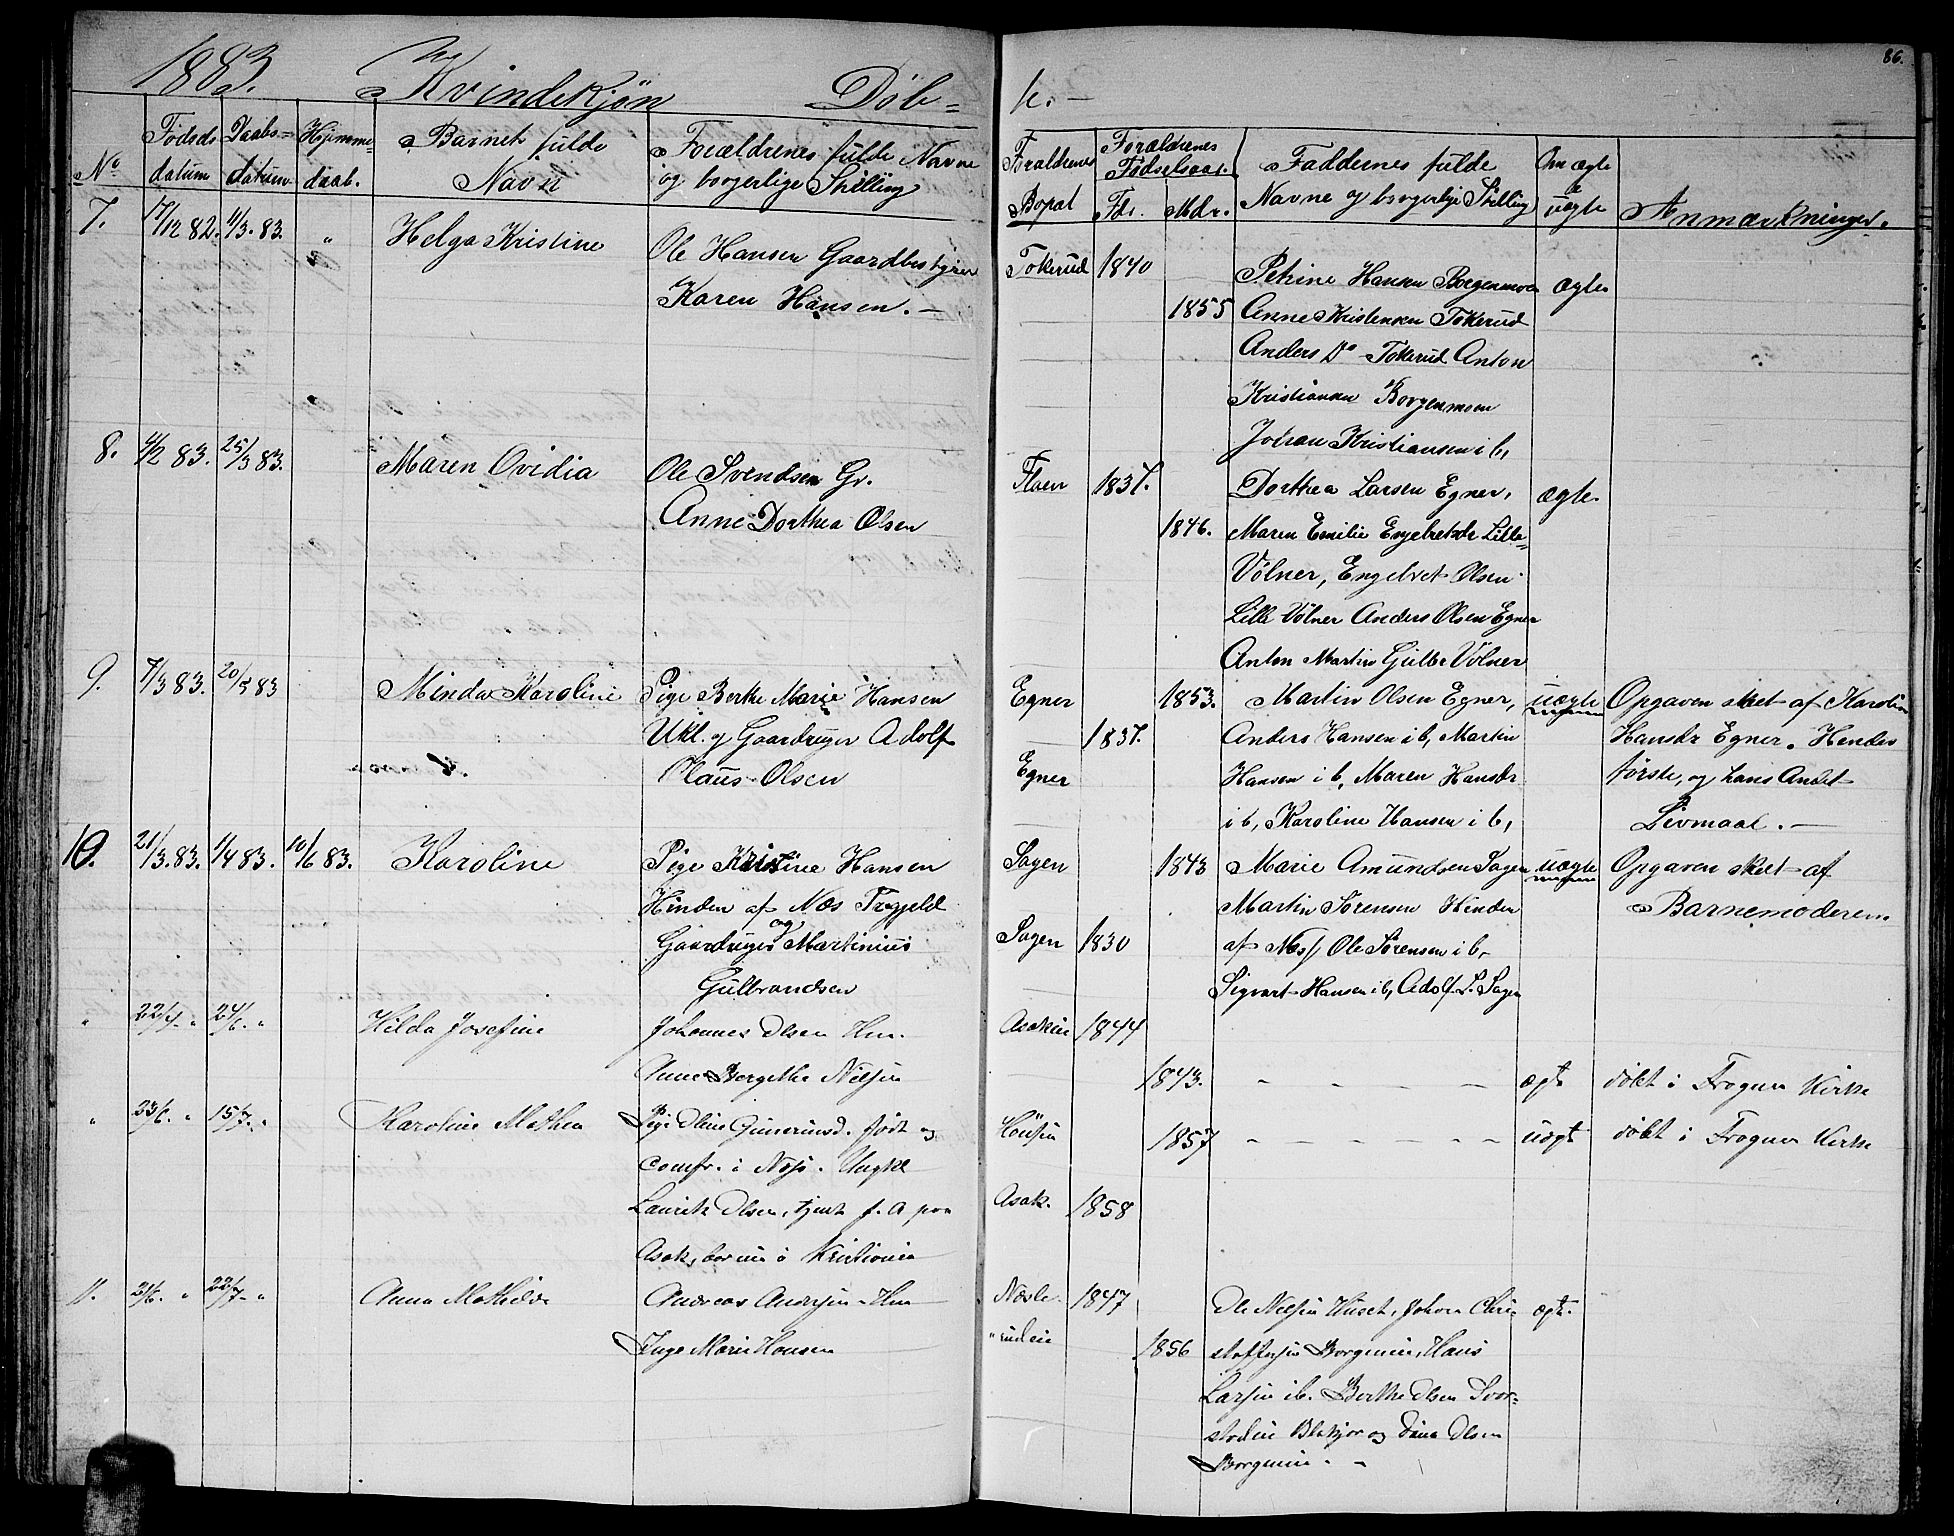 86.
1883. Kvindekjøn Døb= te. –
No Fødsels datum Daabs= datum Hjemme= daab. Barnets fulde Navn Forældrenes fulde Navne og borgerlige Stilling Forældrenes Bopæl Forældrenes Fødselsaar. Fdr. Mdr. Faddernes fulde Navne og borgerlige Stilling Om ægte el. uægte Anmærkninger.
7. 17/12 82. 4/3. 83. " Helga Kristine Ole Hansen Gaardbestyrer Tokerud 1840 Petrine Hansen Borgenmoen ægte
Karen Hansen. – 1855 Anne Kristensen Tokerud
Anders Do – Tokerud Anton
Kristiansen Borgenmoen
Johan Kristiansen i b,
8. 4/2 83. 25/3 83. Maren Ovidia Ole Svendsen Gr. Flaen 1837. Dorthea Larsen Egner, ægte.
Anne Dorthea Olsen 1846. Maren Emilie Engebretsdr Lille=
Vølner, Engebret Olsen
Lille Vølner Anders Olsen Egner
Anton Martin Gulbr Vølner
9. 7/3 83. 20/5 83 Minda Karoline Pige Berthe Marie Hansen Egner 1853. Martin Olsen Egner, uægte Opgaven skeet af Karoline
Ukl. og Gaardbruger Adolf 1837. Anders Hansen i b, Martin Hansdr Egner. Hendes
Klaus Olsen Egner Hansen i b, Maren Hansdr første, og hans Andet
i b, Karoline Hansen i b, Leiermaal. –
10. 21/3. 83. 1/4 83. 10/6 83. Karoline Pige Kristine Hansen Sagen 1843 Marie Amundsen Sagen uægte Opgaven skeet af
Hinden af Næs Prgjeld Martin Sørensen Hinden Barnemoderen.
og
Gaardbruger Martinius Sagen 1830 af Næs, Ole Sørensen i b,
Gulbrandsen Sigvart Hansen i b, Adolf L. Sagen
" 22/4. " 24/6. " Hilda Josefine Johannes Olsen Hm. Asakeie 1844
Anne Bergithe Nilsen 1843. – – – – – ægte døbt i Frogner Kirke
" 23/6. " 15/7. " Karoline Mathea Pige Oline Guneriusd. født og 1857 – – – – – – uægt døbt i Frogner Kirke
comfr. i Næs. Ungkl
Lauritz Olsen, tjent f. A paa Asak. 1858
Asak, bor nu i Kristiania
11. 21/6. " 22/7. " Anna Mathilde Andreas Andersen Hm Næsle= 1847 Ole Nilsen Huset, Johan Chri= ægte.
Inge Marie Hansen rudeie 1856 stoffersen Borgeneie, Hans
Larsen i b. Berthe Olsen Svor=
stadeie Blakjer og Dina Olsen
Borgeneie. –